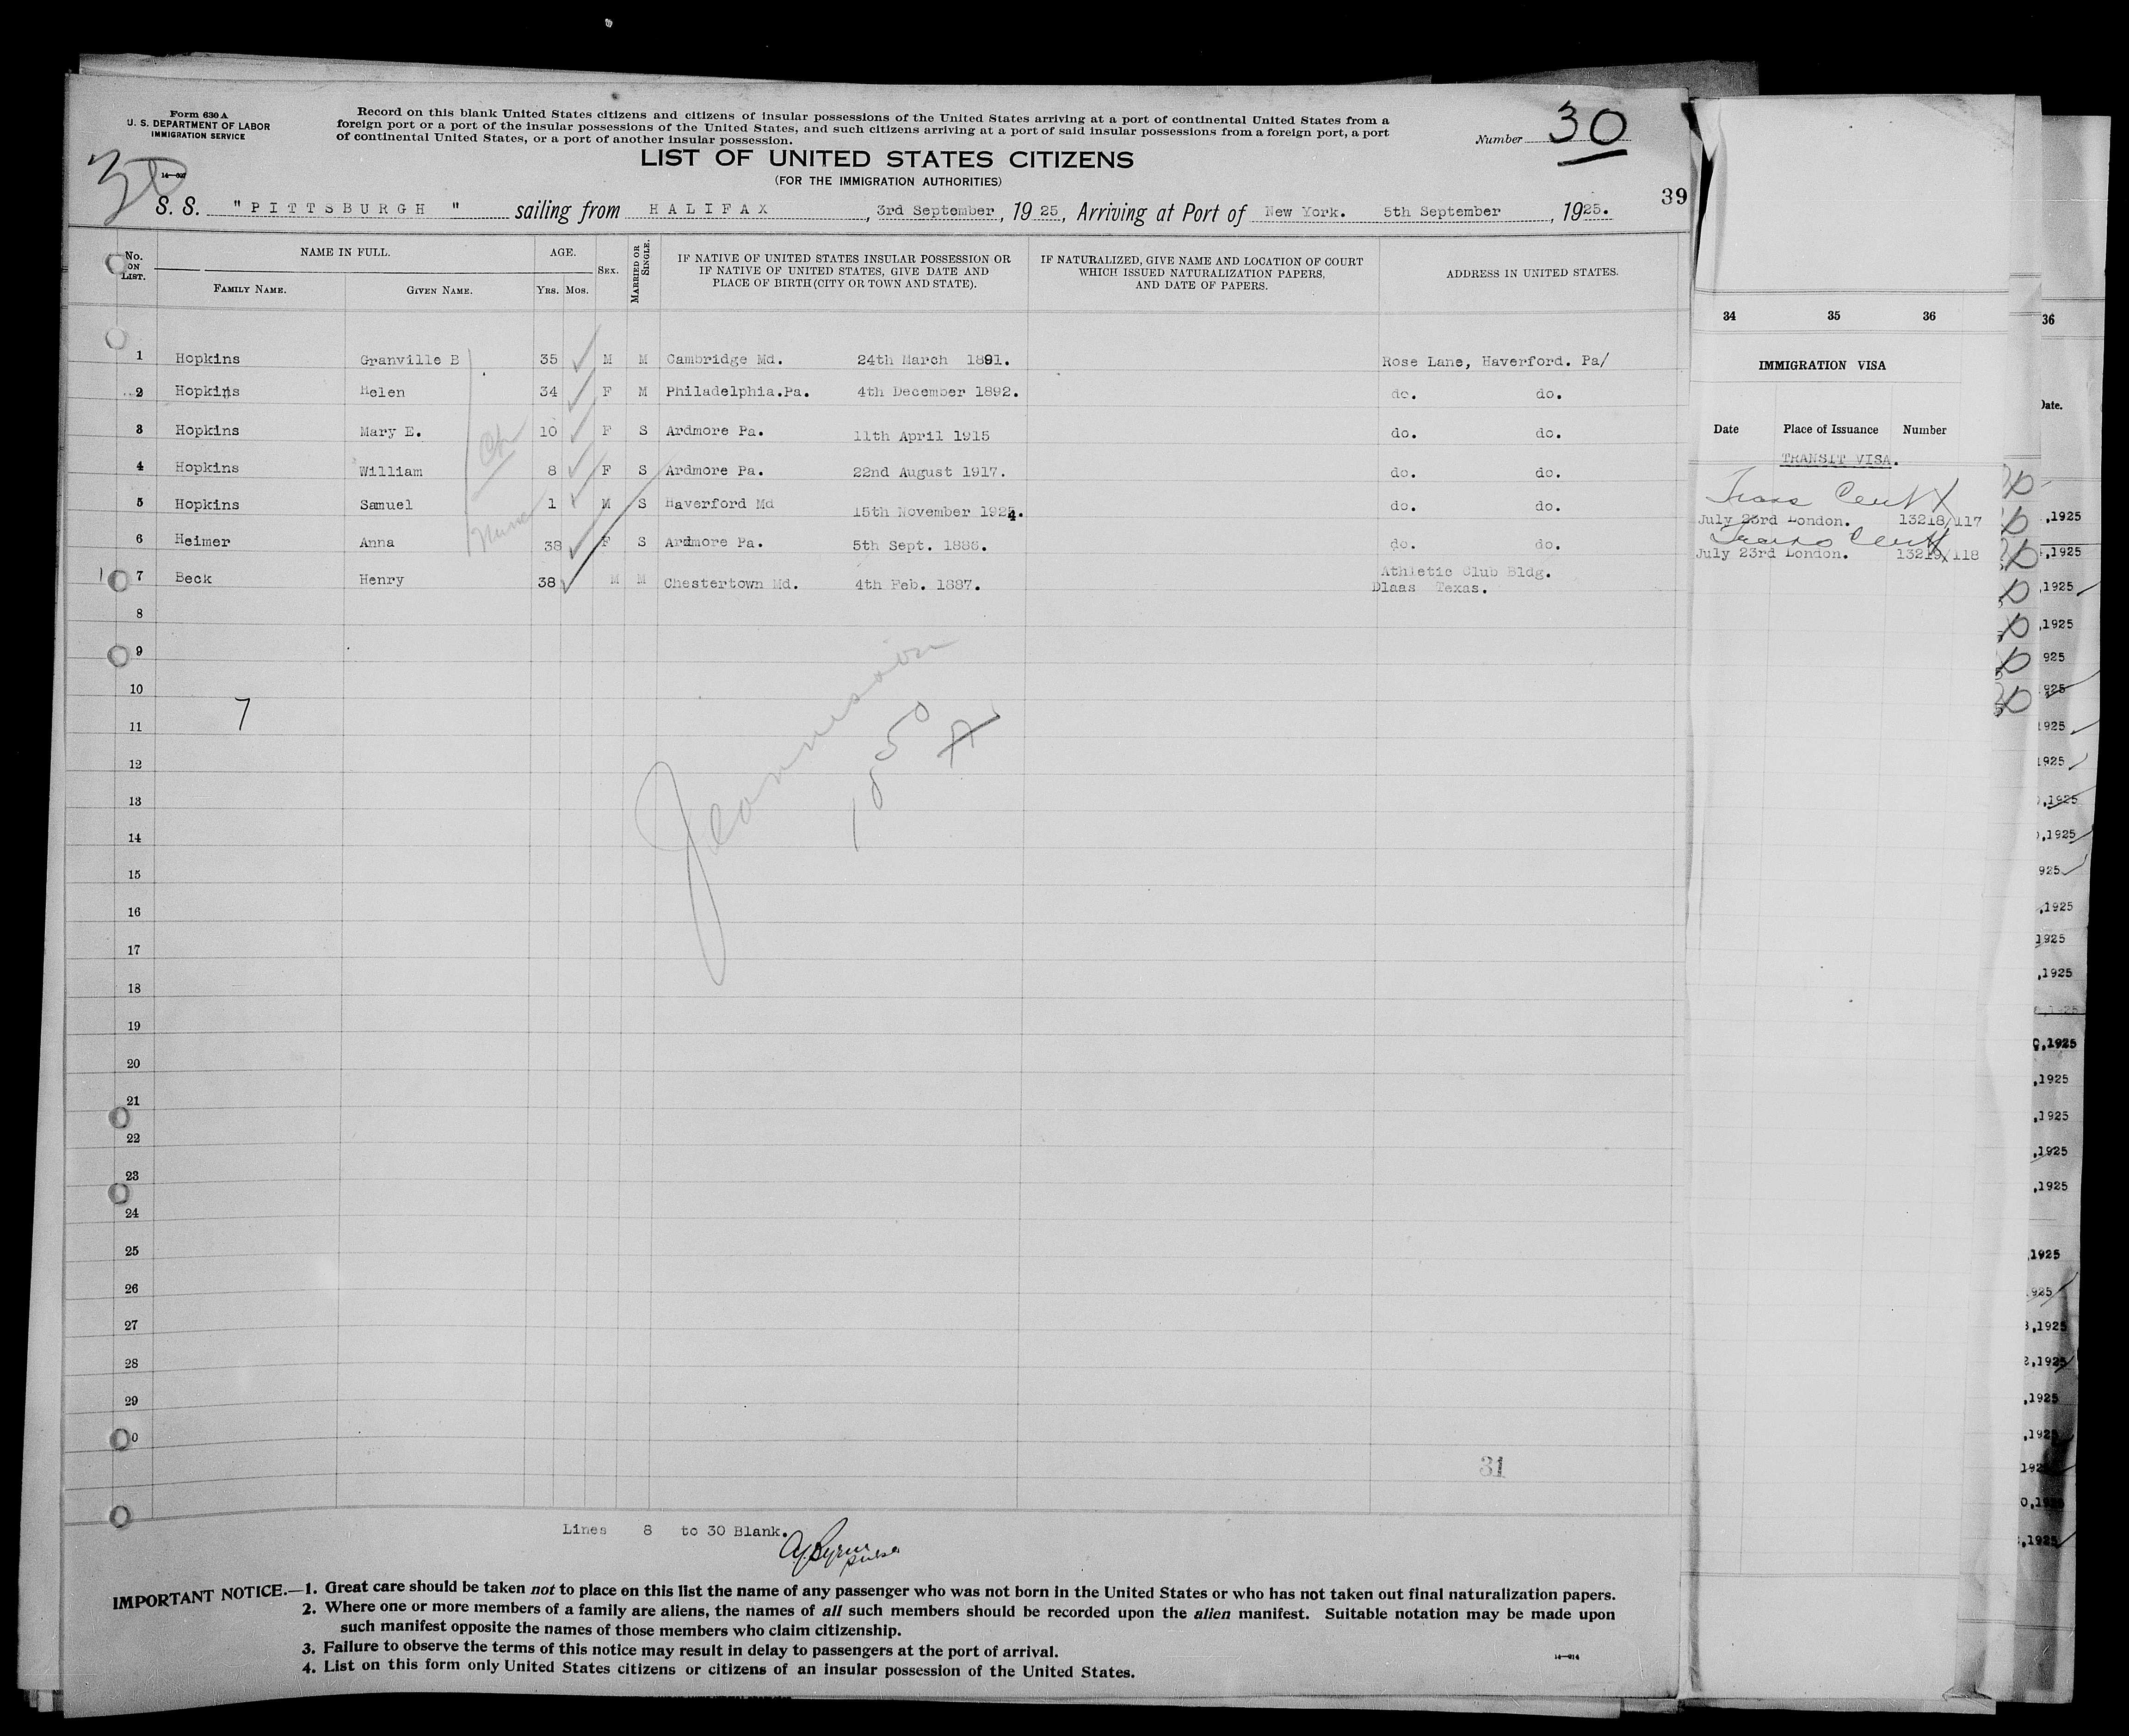 Form 630 A
U. S. DEPARTMENT OF LABOR
IMMIGRATION SERVICE
Record on this blank United States citizens and citizens of insular possessions of the United States arriving at a port of continental United States from a
foreign port or a port of the insular possessions of the United States, and such citizens arriving at a port of said insular possessions from a foreign port, a port
of continental United States, or a port of another insular possession.
Number 30
LIST OF UNITED STATES CITIZENS
(FOR THE IMMIGRATION AUTHORITIES)
30
39
S. S. "PITTSBURGH " sailing from HALIFAX, 3rd September, 19 25, Arriving at Port of New York. 5th September, 1925.
No. ON LIST.
NAME IN FULL.
FAMILY NAME. GIVEN NAME.
AGE.
YRS. MOS.
SEX.
MARRIED OR SINGLE.
IF NATIVE OF UNITED STATES INSULAR POSSESSION OR
IF NATIVE OF UNITED STATES, GIVE DATE AND
PLACE OF BIRTH (CITY OR TOWN AND STATE).
IF NATURALIZED, GIVE NAME AND LOCATION OF COURT
WHICH ISSUED NATURALIZATION PAPERS,
AND DATE OF PAPERS.
ADDRESS IN UNITED STATES.
1 Hopkins Granville B 35 M M Cambridge Md. 24th March 1891. Rose Lane, Haverford. Pa/
2 Hopkins Helen 34 F M Philadelphia.Pa. 4th December 1892. do. do.
3 Hopkins Mary E. 10 F S Ardmore Pa. 11th April 1915 do. do.
4 Hopkins William 8 F S Ardmore Pa. 22nd August 1917. do. do.
5 Hopkins Samuel 1 M S Haverford Md 15th November 1924. do. do.
6 Heimer Anna 38 F S Ardmore Pa. 5th Sept. 1886. do. do.
7 Beck Henry 38 M M Chestertown Md. 4th Feb. 1887. Athletic Club Bldg.
Dlaas Texas.
8
9
10
7
11
12
13
14
15
16
17
18
19
20
21
22
23
24
25
26
27
28
29
0
31
Lines 8 to 30 Blank.
IMPORTANT NOTICE.—1. Great care should be taken not to place on this list the name of any passenger who was not born in the United States or who has not taken out final naturalization papers.
2. Where one or more members of a family are aliens, the names of all such members should be recorded upon the alien manifest. Suitable notation may be made upon
such manifest opposite the names of those members who claim citizenship.
3. Failure to observe the terms of this notice may result in delay to passengers at the port of arrival.
4. List on this form only United States citizens or citizens of an insular possession of the United States.
14—914
34 35 36
IMMIGRATION VISA
Date Place of Issuance Number
TRANSIT VISA.
July 23rd London. 13218/117
July 23rd London. 13219/118
36
Date.
,1925
,1925
,1925
,1925
925
925
1925
1925
,1925
,1925
925
,1925
1925
,1925
,1925
,1925
,1925
,1925
,1925
1925
925
,1925
,1925
,1925